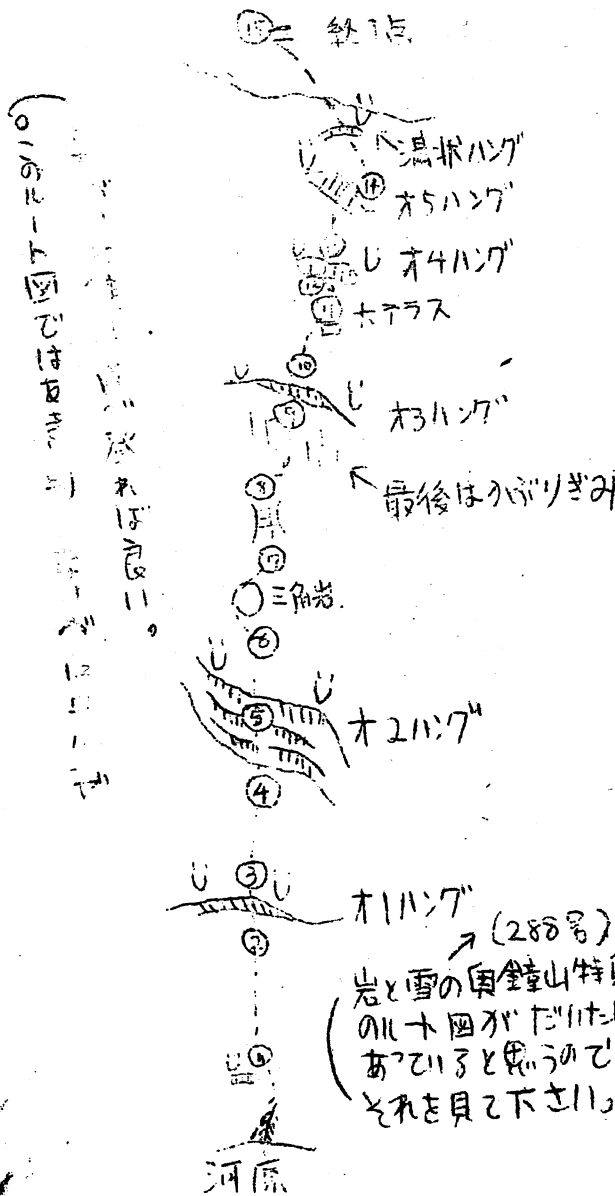 ⑮ 終了点
渦状ハング
⑭
オ5ハング
オ4ハング
⑪ ホテラス
⑩
オ3ハング
⑨
最後はかぶりぎみ
⑧
⑦
三角岩
⑥
⑤
オ2ハング
④
③
オ1ハング
②
(288号)
岩と雪の奥鐘山特
のルート図がだいたい
あっていると思うので
それを見て下さい。
河原
れば良い。
このルート図では